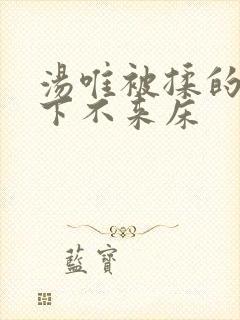 湯唯被揉的
下不来床
藍寶